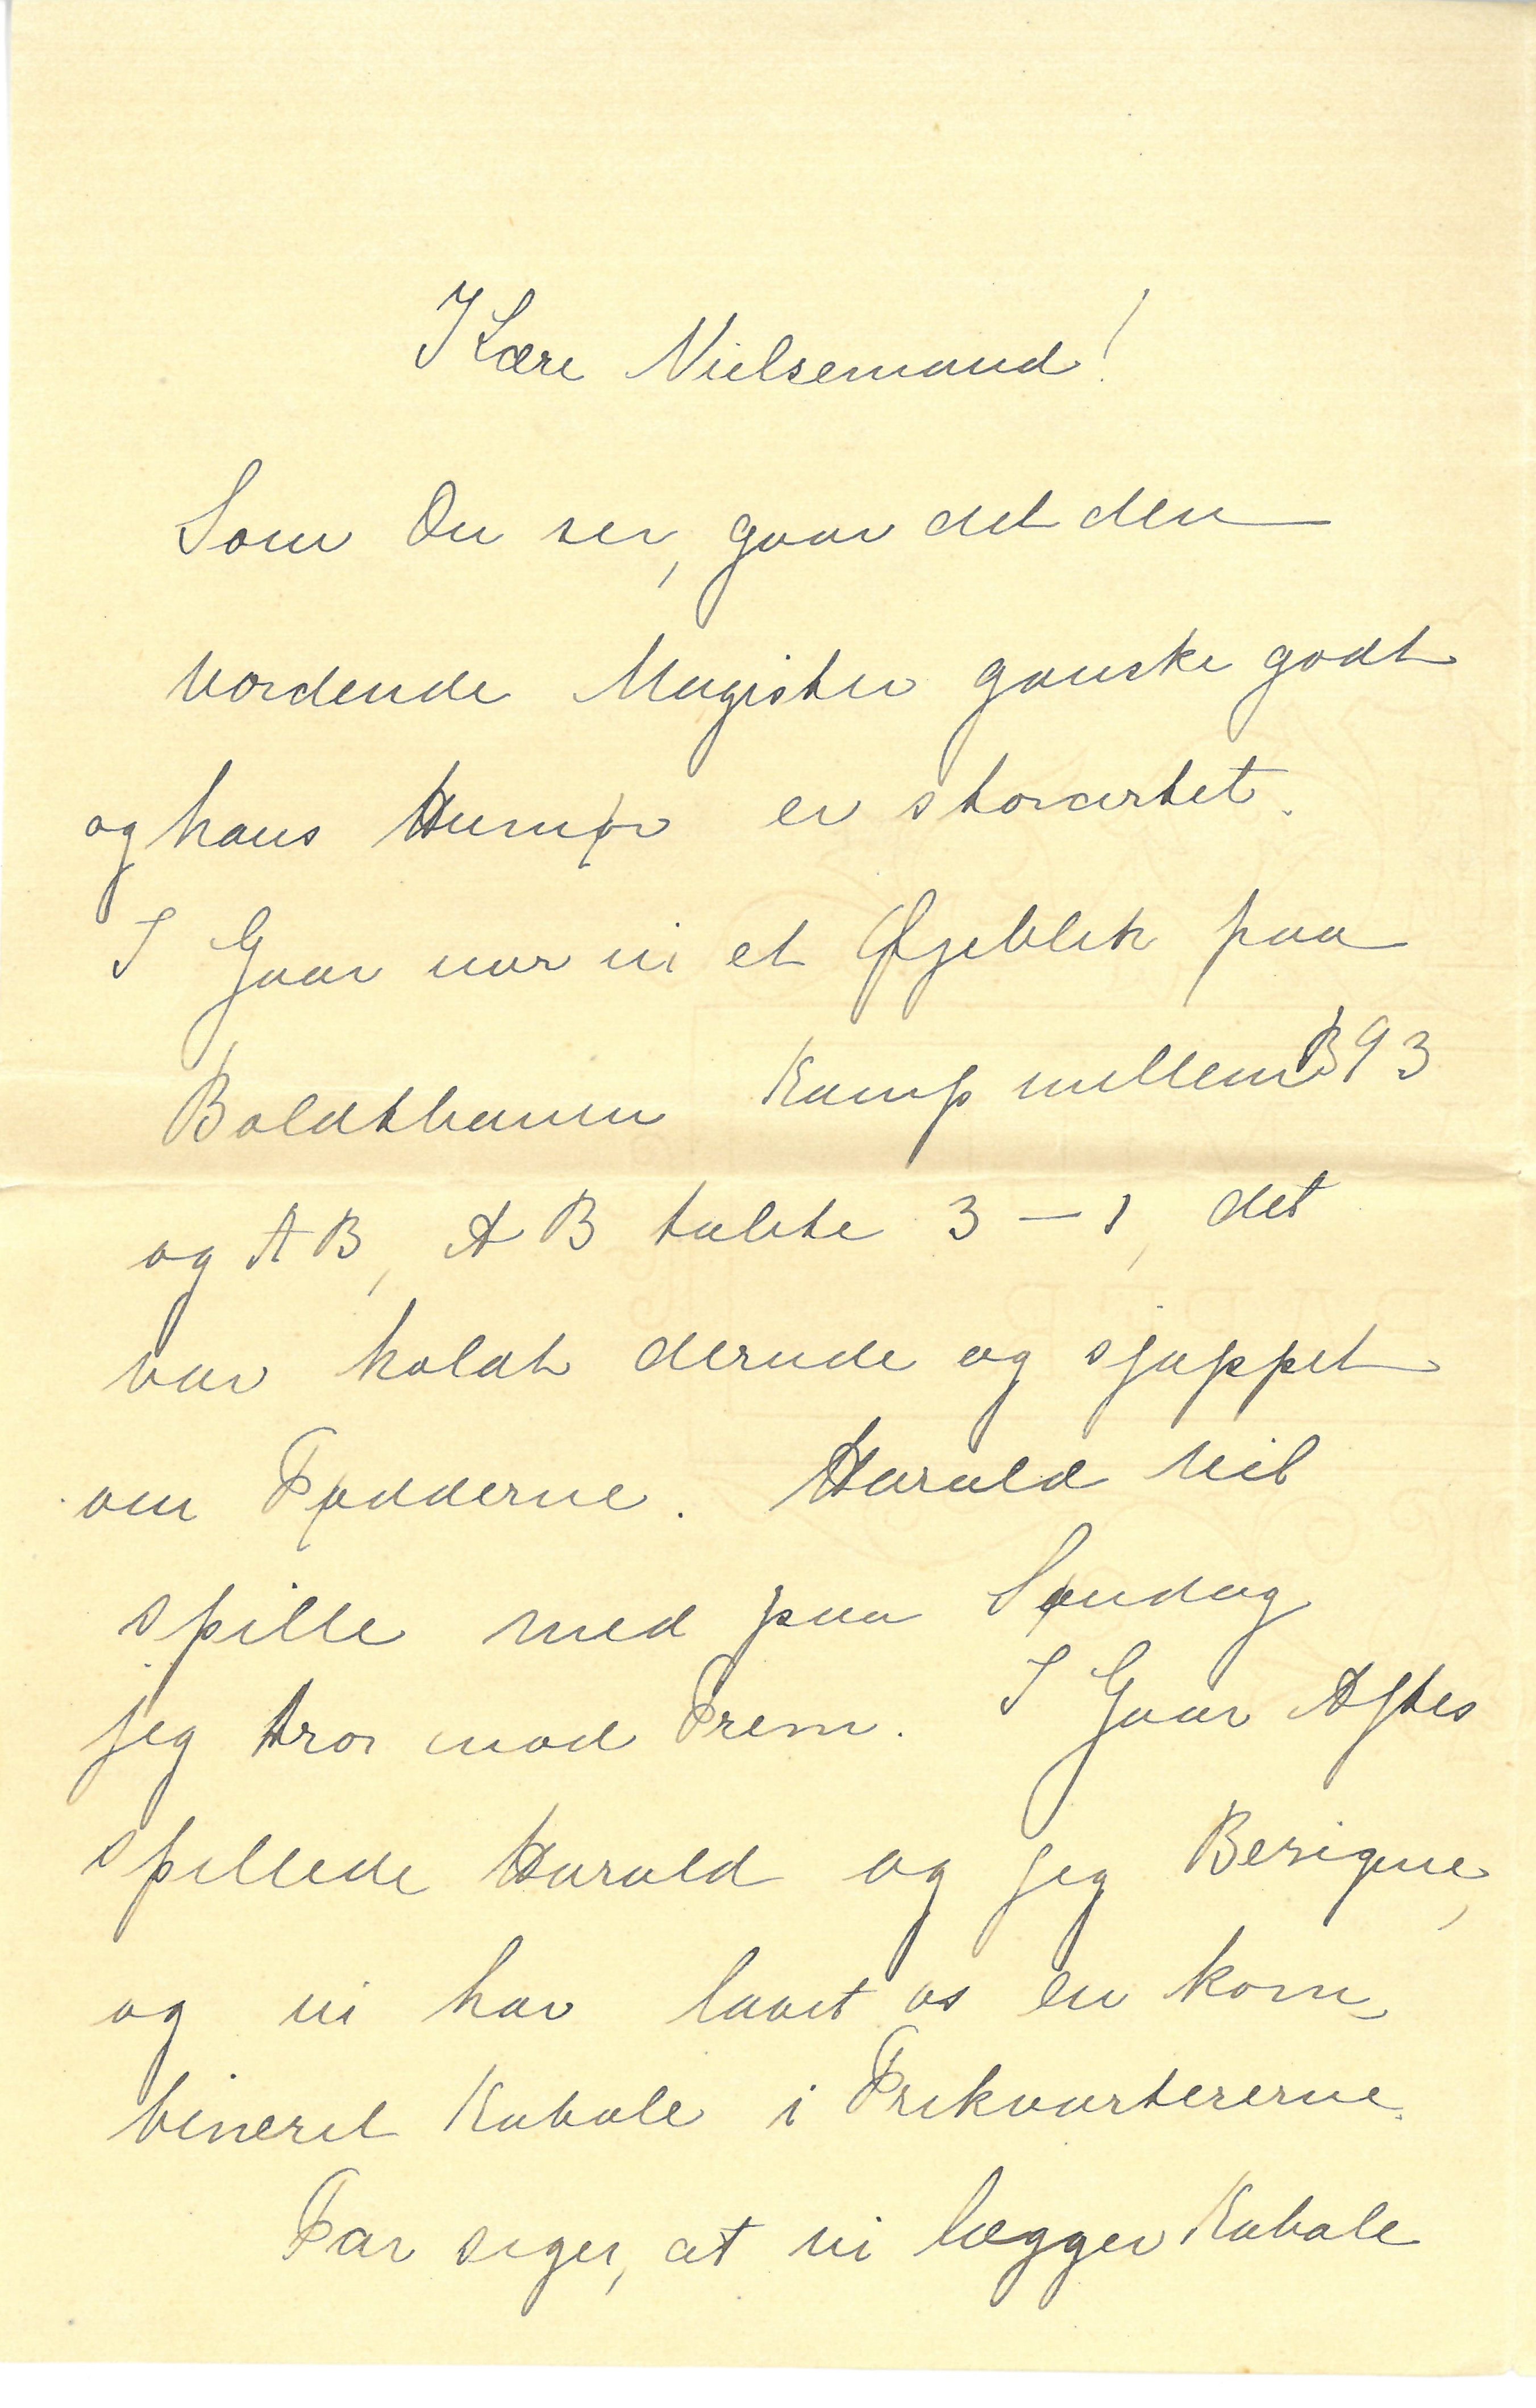 Kære Nielsemand!
Som Du ser, gaar det den
vordende Magister ganske godt
og hans Humør er storartet.
I Gaar var vi et Øjeblik paa
Boldtbanen Kamp mellem B 93
og AB, AB tabte 3 – 1, det
var koldt derude og sjappet
om Fødderne. Harald vil
spille med paa Søndag
jeg tror mod Frem. I Gaar Aftes
spillede Harald og jeg Besigue,
og vi har lavet os en kom-
bineret Kabale i Frikvartererne.
Far siger, at vi lægger Kabale